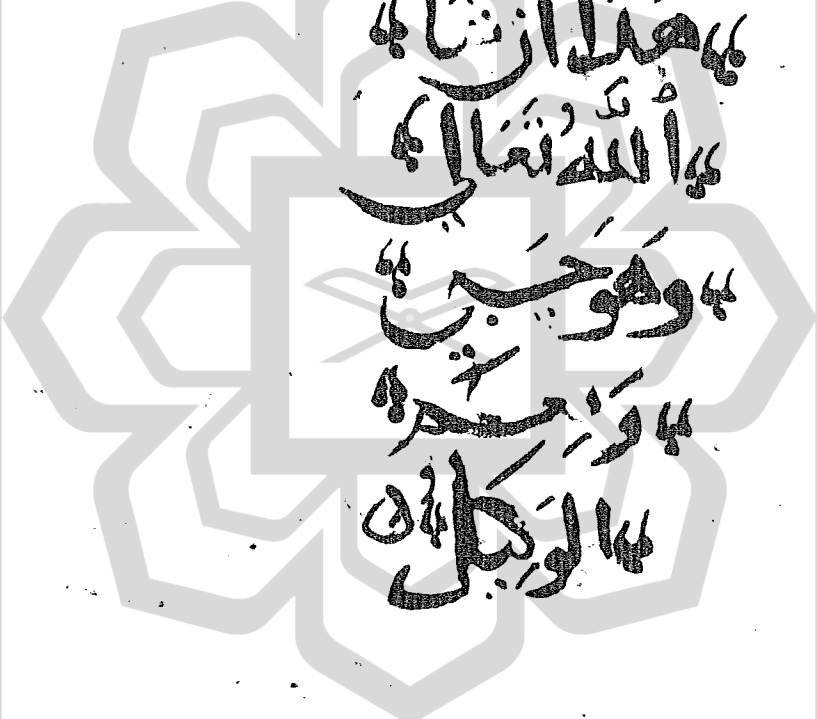 هَذَا ان شا
أللَّهُ تَعَالي
وَهوَ حَسبي
وَنعم
الوَكِيل ه